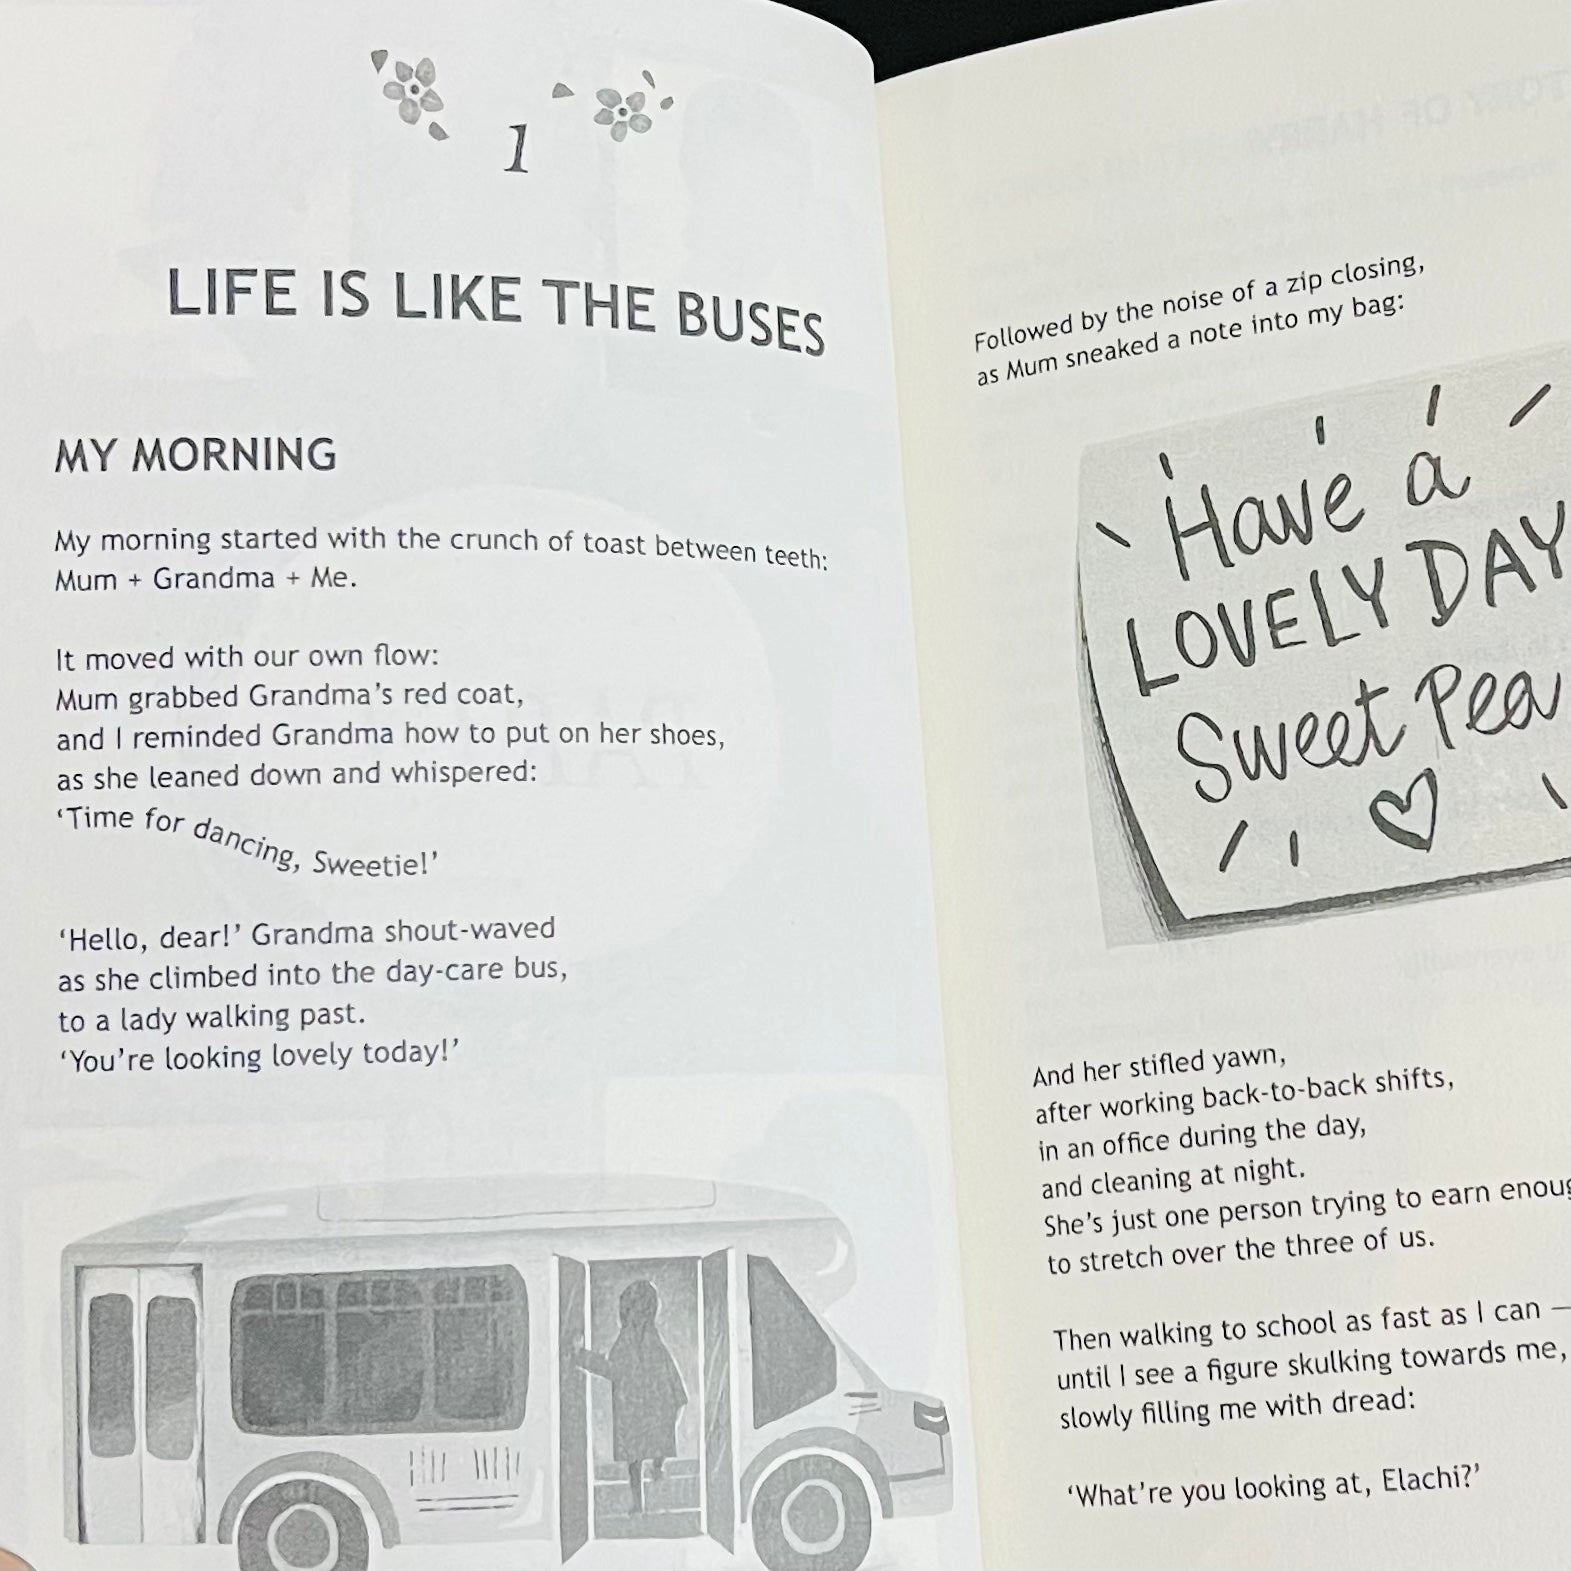 1
LIFE IS LIKE THE BUSES
MY MORNING
My morning started with the crunch of toast between teeth:
Mum + Grandma + Me.
It moved with our own flow:
Mum grabbed Grandma's red coat,
and I reminded Grandma how to put on her shoes,
as she leaned down and whispered:
‘Time for dancing, Sweetie!’
‘Hello, dear!’ Grandma shout-waved
as she climbed into the day-care bus,
to a lady walking past.
‘You're looking lovely today!’
Followed by the noise of a zip closing,
as Mum sneaked a note into my bag:
Have a
LOVELY DAY
Sweet Pea
And her stifled yawn,
after working back-to-back shifts,
in an office during the day,
and cleaning at night.
She's just one person trying to earn
to stretch over the three of us.
Then walking to school as fast as I can —
until I see a figure skulking towards me,
slowly filling me with dread:
‘What're you looking at, Elachi?’